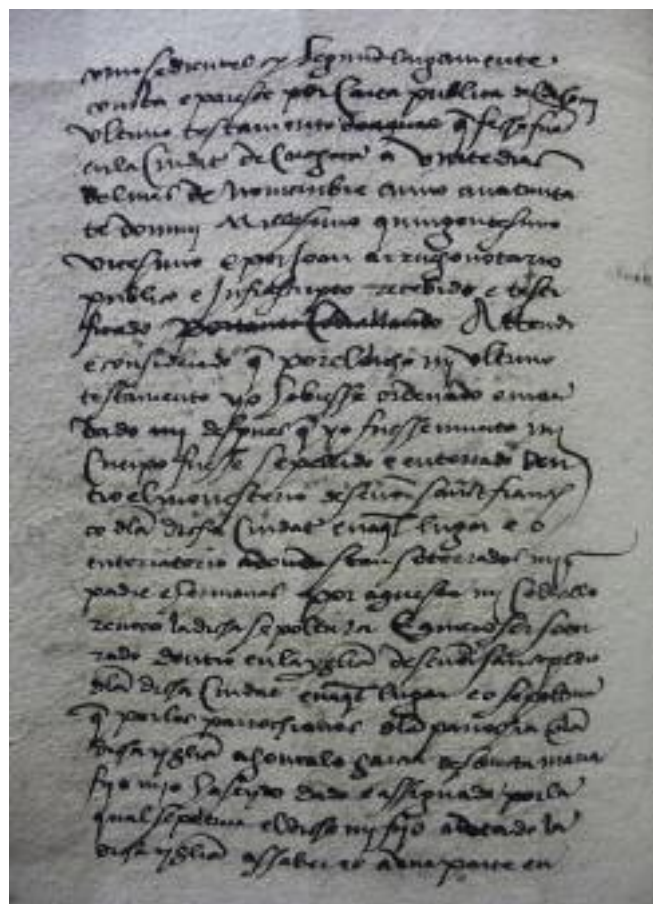 segund largamente
consta e parece por Carta publica de
ultimo testamento q fecha fue
en la Ciudat de Caragoca a vinte dias
del mes de Nouiembre anno
te domini Millesimo quingentesimo
vicesimo e por Joan notario
publico e Infrascripto recebido e testi
ficado Attendi
e considerado q por el dicho mi ultimo
testamento yo hobiesse ordenado e man
dado mi despues q yo fuesse muerto mi
Cuerpo fuesse sepellido e enterrado den
tro el monesterio de senor sanct francis
co dla dicha Ciudat en aql lugar e o
enterratorio adonde stan soterrados mis
padre e hermanos por aqueste mi Cobdicillo
reuoco la dicha sepoltura E quiero ser soter
rado dentro en la yglesia de senor sanct pedro
dla dicha Ciudat en aql lugar e o sepoltura
q por los parrochianos dla parrochia dla
dicha yglesia a goncalo garcia de sancta maria
fijo mio ha seydo dado e assignado por la
qual sepoltura el dicho mi fijo a dotado la
dicha yglesia assaber es a una parte en